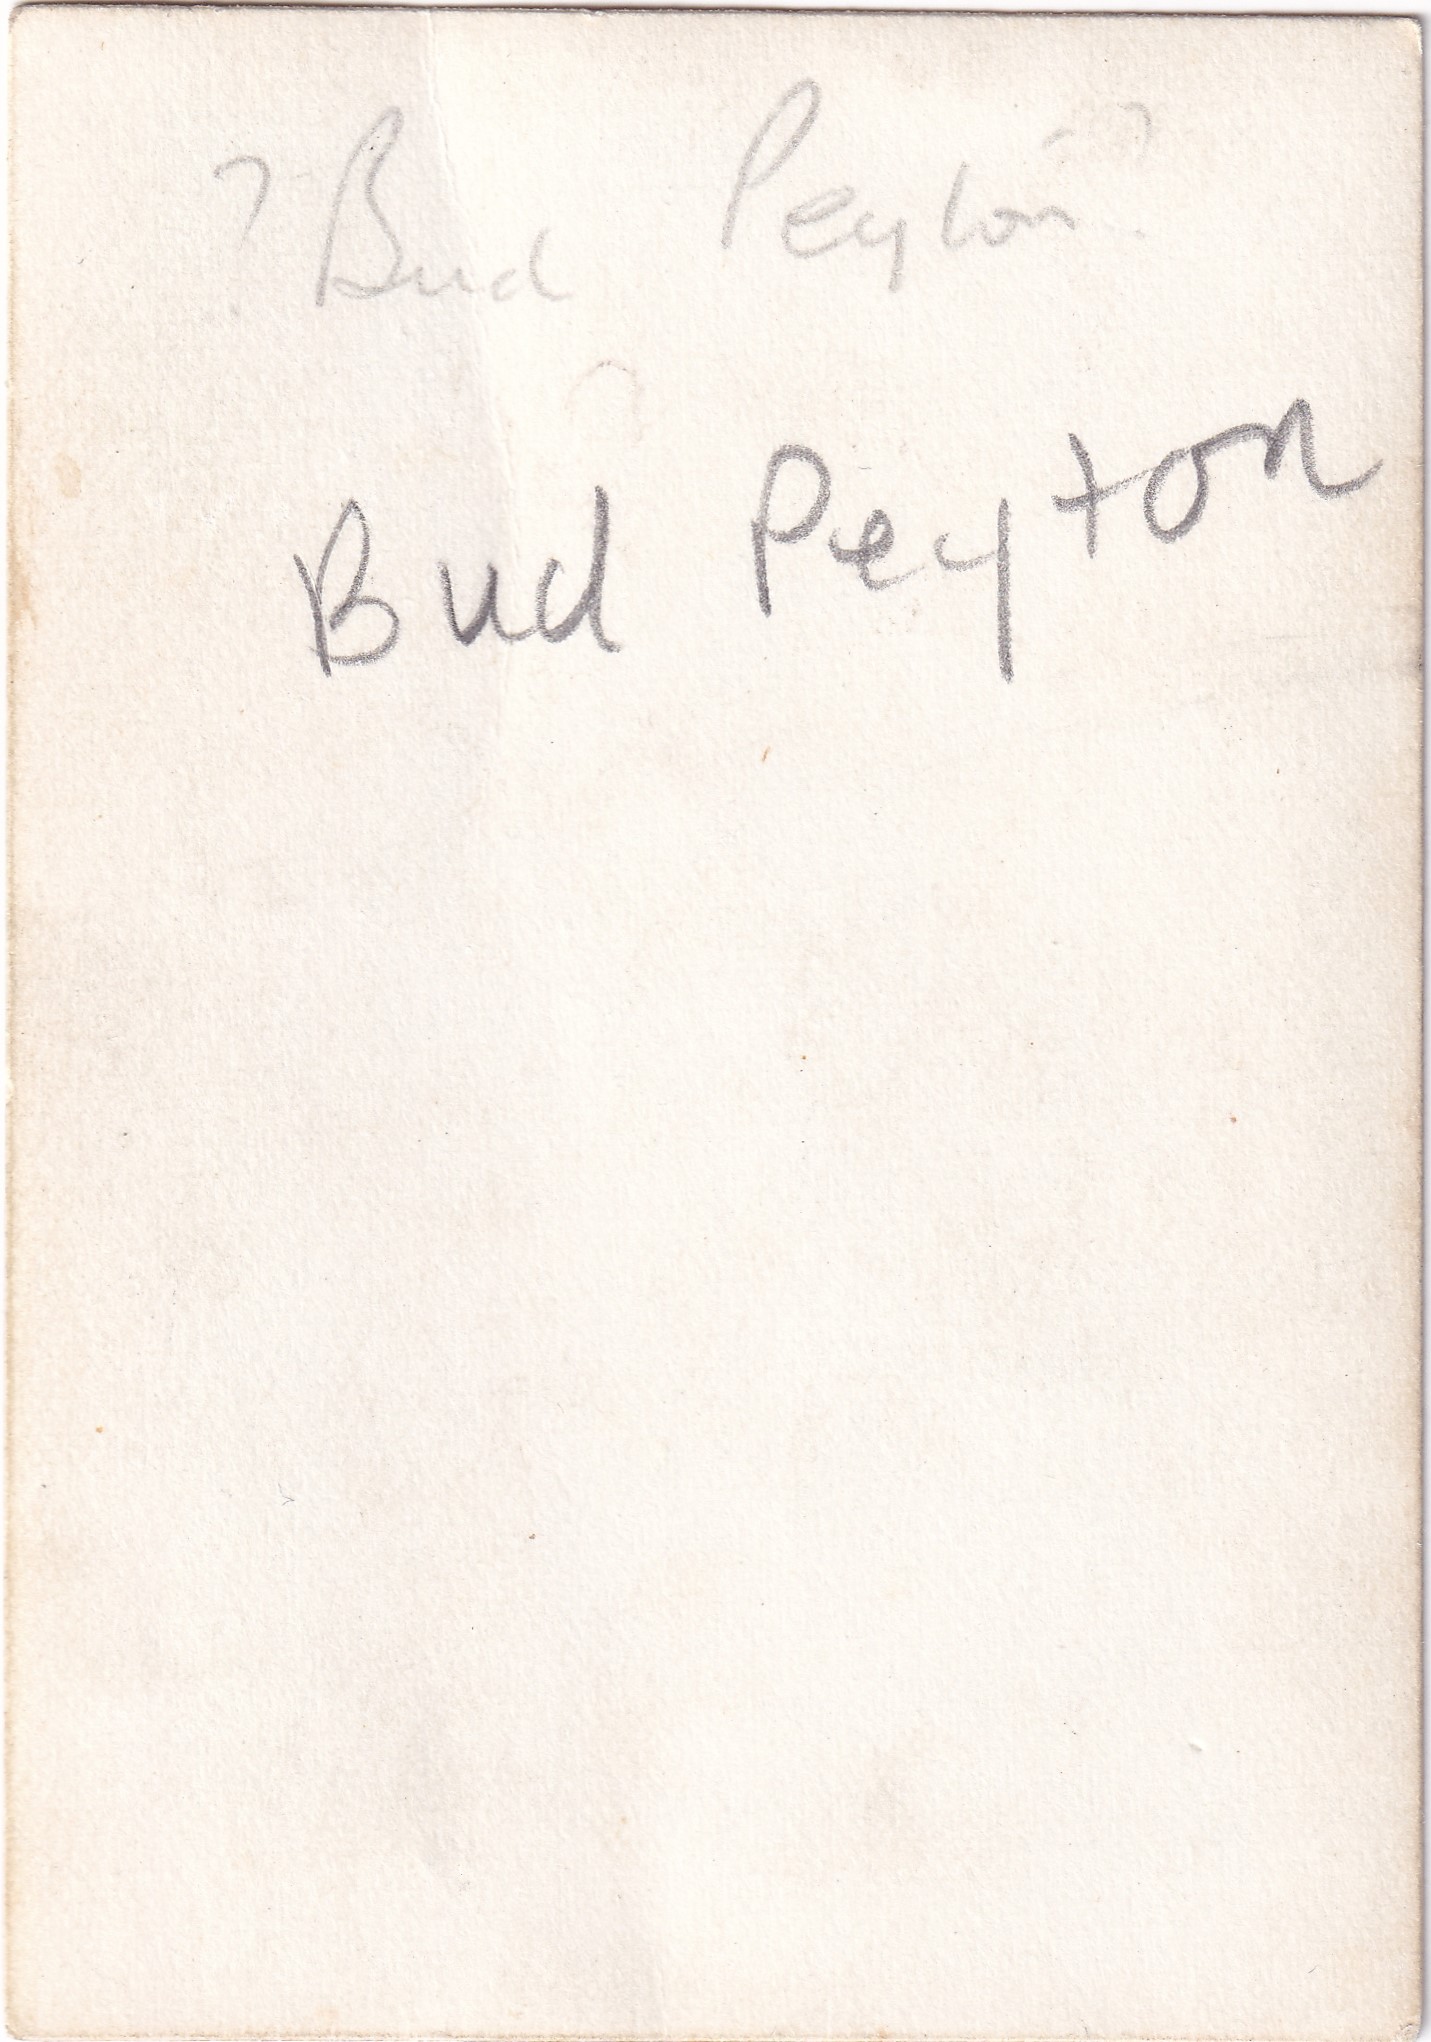 ? Bud Peyton ?
Bud Peyton